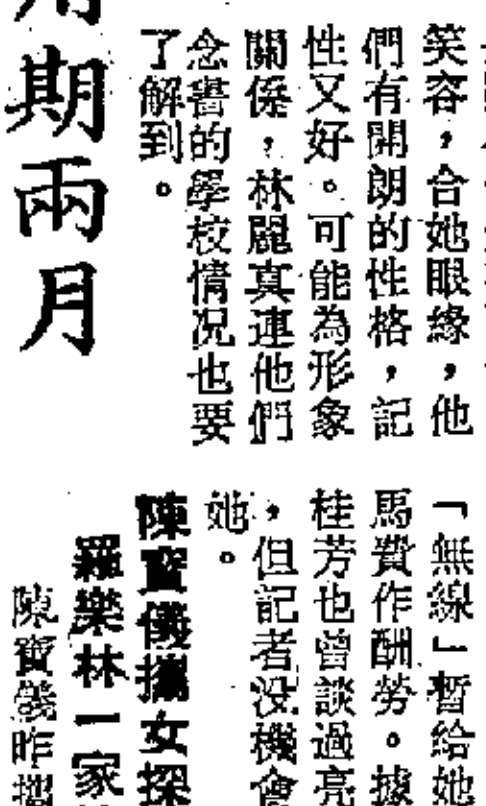 笑容，合她眼緣，他
們有開朗的性格，記
性又好。可能為形象
關係，林麗真連他們
念書的學校情況也要
了解到。
期兩月
「無線」暫給她
馬費作酬勞。據
桂芳也曾談過亮
，但記者没機會
她。
陳寶儀攜女探
羅樂林一家
陳寶儀昨攜